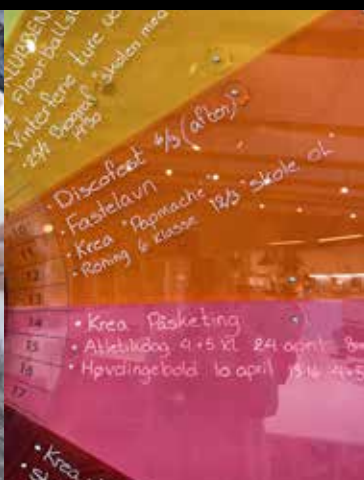 KLUBBEN
Floorballst
• Vinterferie ture
25/2 Biograf "skolen med
1430
• Discofest 4/3 (aften)
• Fastelavn
• Krea "Papmache"
• Roning 6 klasse 12/3 "skole OL
10
11
12
13
14
15
16
17
• Krea Påsketing
• Atletikdag 4+5 kl 24 april
• Høvdingebold 10 april 4+5
• Krea